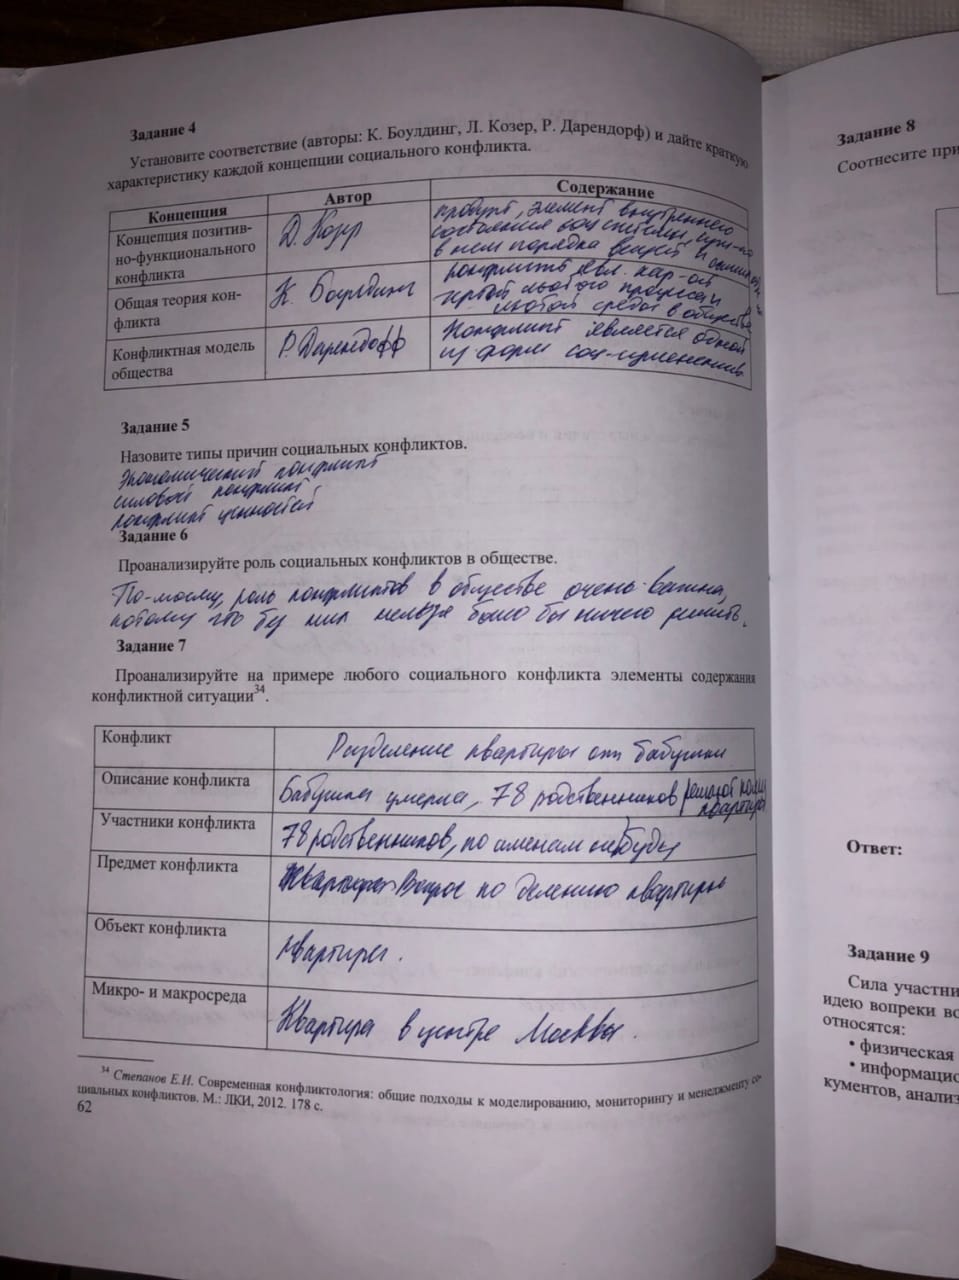 Задание 4
Установите соответствие (авторы: К. Боулдинг, Л. Козер, Р. Дарендорф) и дайте краткую
характеристику каждой концепции социального конфликта.
Концепция Автор Содержание
Концепция позитив-
но-функционального
конфликта
Д. Козер
продукт, элемент внутреннего
состояния соц системы,
в нем порядка вещей и
Общая теория кон-
фликта
К. Боулдинг
конфликт явл. хар-ой
чертой любого процесса и
любой среды в обществе
Конфликтная модель
общества
Р. Дарендофф
Конфликт является одной
из форм соц-
Задание 5
Назовите типы причин социальных конфликтов.
Экономический конфликт
силовой конфликт
конфликт ценностей
Задание 6
Проанализируйте роль социальных конфликтов в обществе.
По-моему, роль конфликтов в обществе очень важна,
потому что без них нельзя было бы ничего решить.
Задание 7
Проанализируйте на примере любого социального конфликта элементы содержания
конфликтной ситуации34.
Конфликт Разделение квартиры от бабушки
Описание конфликта Бабушка умерла, 78 родственников решают
квартира
Участники конфликта 78 родственников, по именам не буду
Предмет конфликта Вопрос по делению квартиры
Объект конфликта квартира.
Микро- и макросреда Квартира в центре Москвы.
34 Степанов Е.И. Современная конфликтология: общие подходы к моделированию, мониторингу и менеджменту со-
циальных конфликтов. М.: ЛКИ, 2012. 178 с.
62
Задание 8
Соотнесите при
Ответ:
Задание 9
Сила участни
идею вопреки вс
относятся:
• физическая
• информацис
кументов, анализ